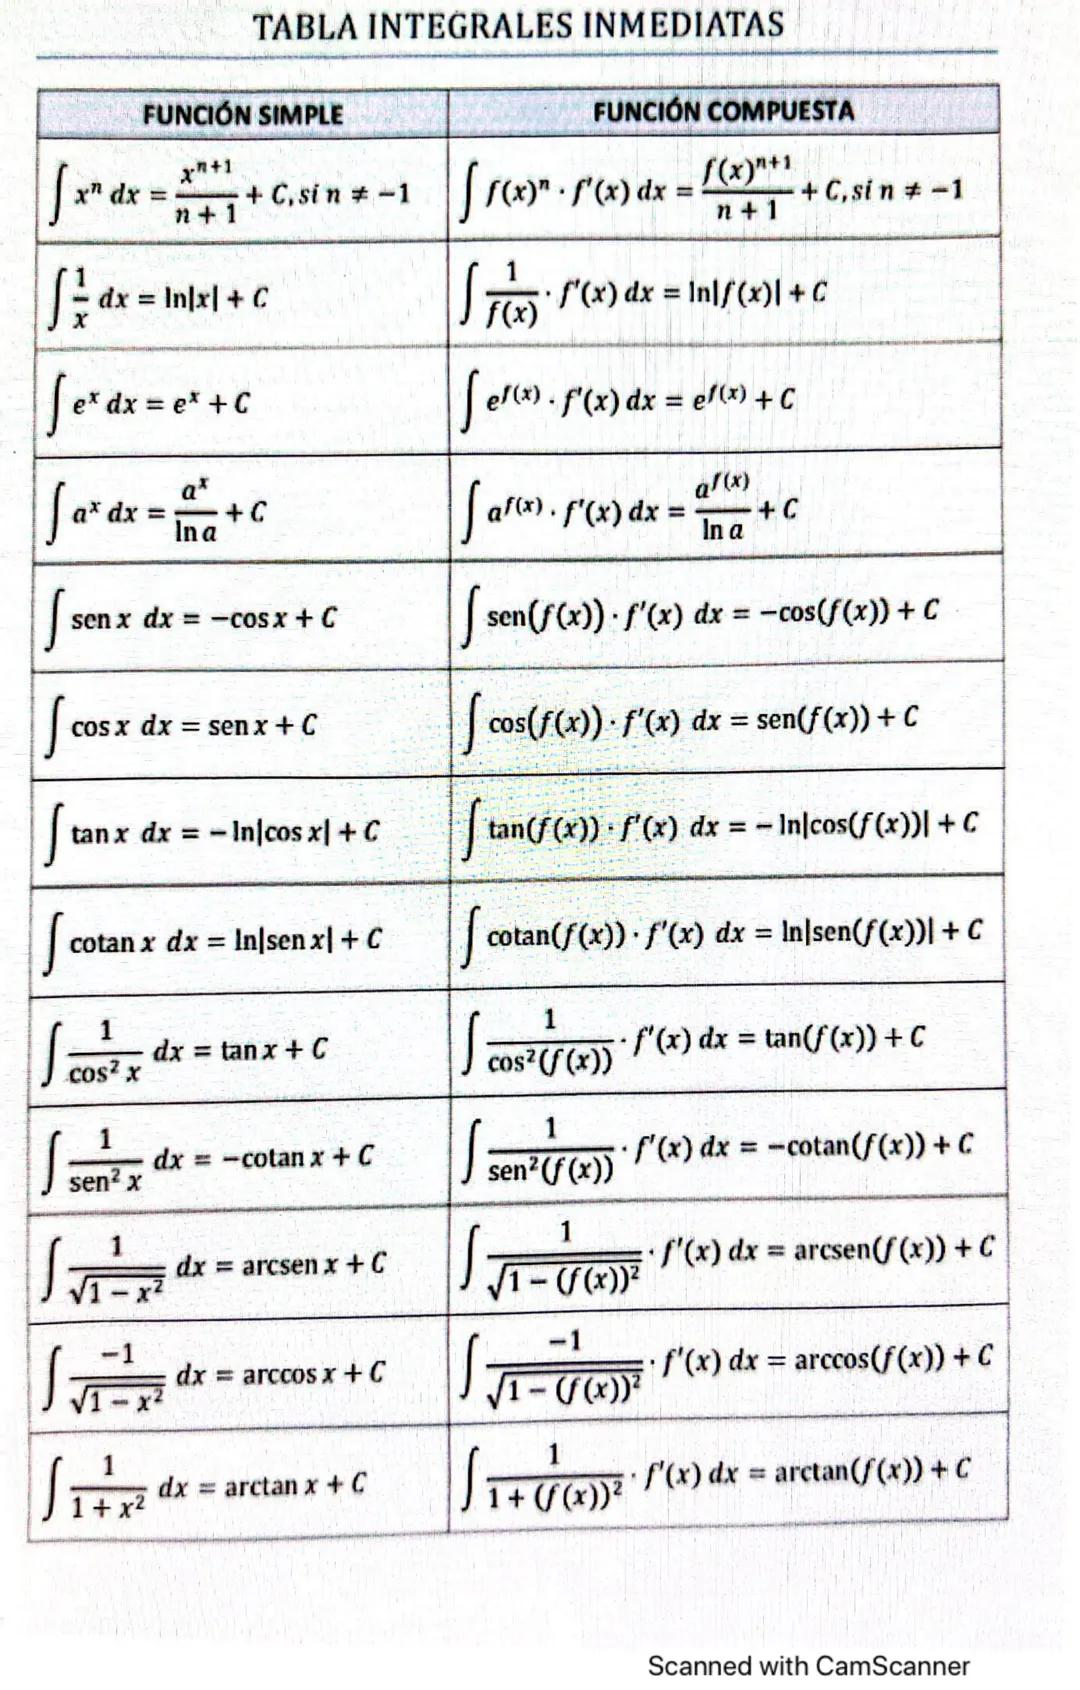 TABLA INTEGRALES INMEDIATAS
FUNCIÓN SIMPLE FUNCIÓN COMPUESTA
∫ xⁿ dx = xⁿ⁺¹/(n + 1) + C, si n ≠ −1 ∫ f(x)ⁿ · f'(x) dx = f(x)ⁿ⁺¹/(n + 1) + C, si n ≠ −1
∫ 1/x dx = ln|x| + C ∫ 1/f(x) · f'(x) dx = ln|f(x)| + C
∫ eˣ dx = eˣ + C ∫ e^f(x) · f'(x) dx = e^f(x) + C
∫ aˣ dx = aˣ/ln a + C ∫ a^f(x) · f'(x) dx = a^f(x)/ln a + C
∫ sen x dx = −cos x + C ∫ sen(f(x)) · f'(x) dx = −cos(f(x)) + C
∫ cos x dx = sen x + C ∫ cos(f(x)) · f'(x) dx = sen(f(x)) + C
∫ tan x dx = − ln|cos x| + C ∫ tan(f(x)) · f'(x) dx = − ln|cos(f(x))| + C
∫ cotan x dx = ln|sen x| + C ∫ cotan(f(x)) · f'(x) dx = ln|sen(f(x))| + C
∫ 1/cos² x dx = tan x + C ∫ 1/cos²(f(x)) · f'(x) dx = tan(f(x)) + C
∫ 1/sen² x dx = −cotan x + C ∫ 1/sen²(f(x)) · f'(x) dx = −cotan(f(x)) + C
∫ 1/√(1 − x²) dx = arcsen x + C ∫ 1/√(1 − (f(x))²) · f'(x) dx = arcsen(f(x)) + C
∫ −1/√(1 − x²) dx = arccos x + C ∫ −1/√(1 − (f(x))²) · f'(x) dx = arccos(f(x)) + C
∫ 1/(1 + x²) dx = arctan x + C ∫ 1/(1 + (f(x))²) · f'(x) dx = arctan(f(x)) + C
Scanned with CamScanner